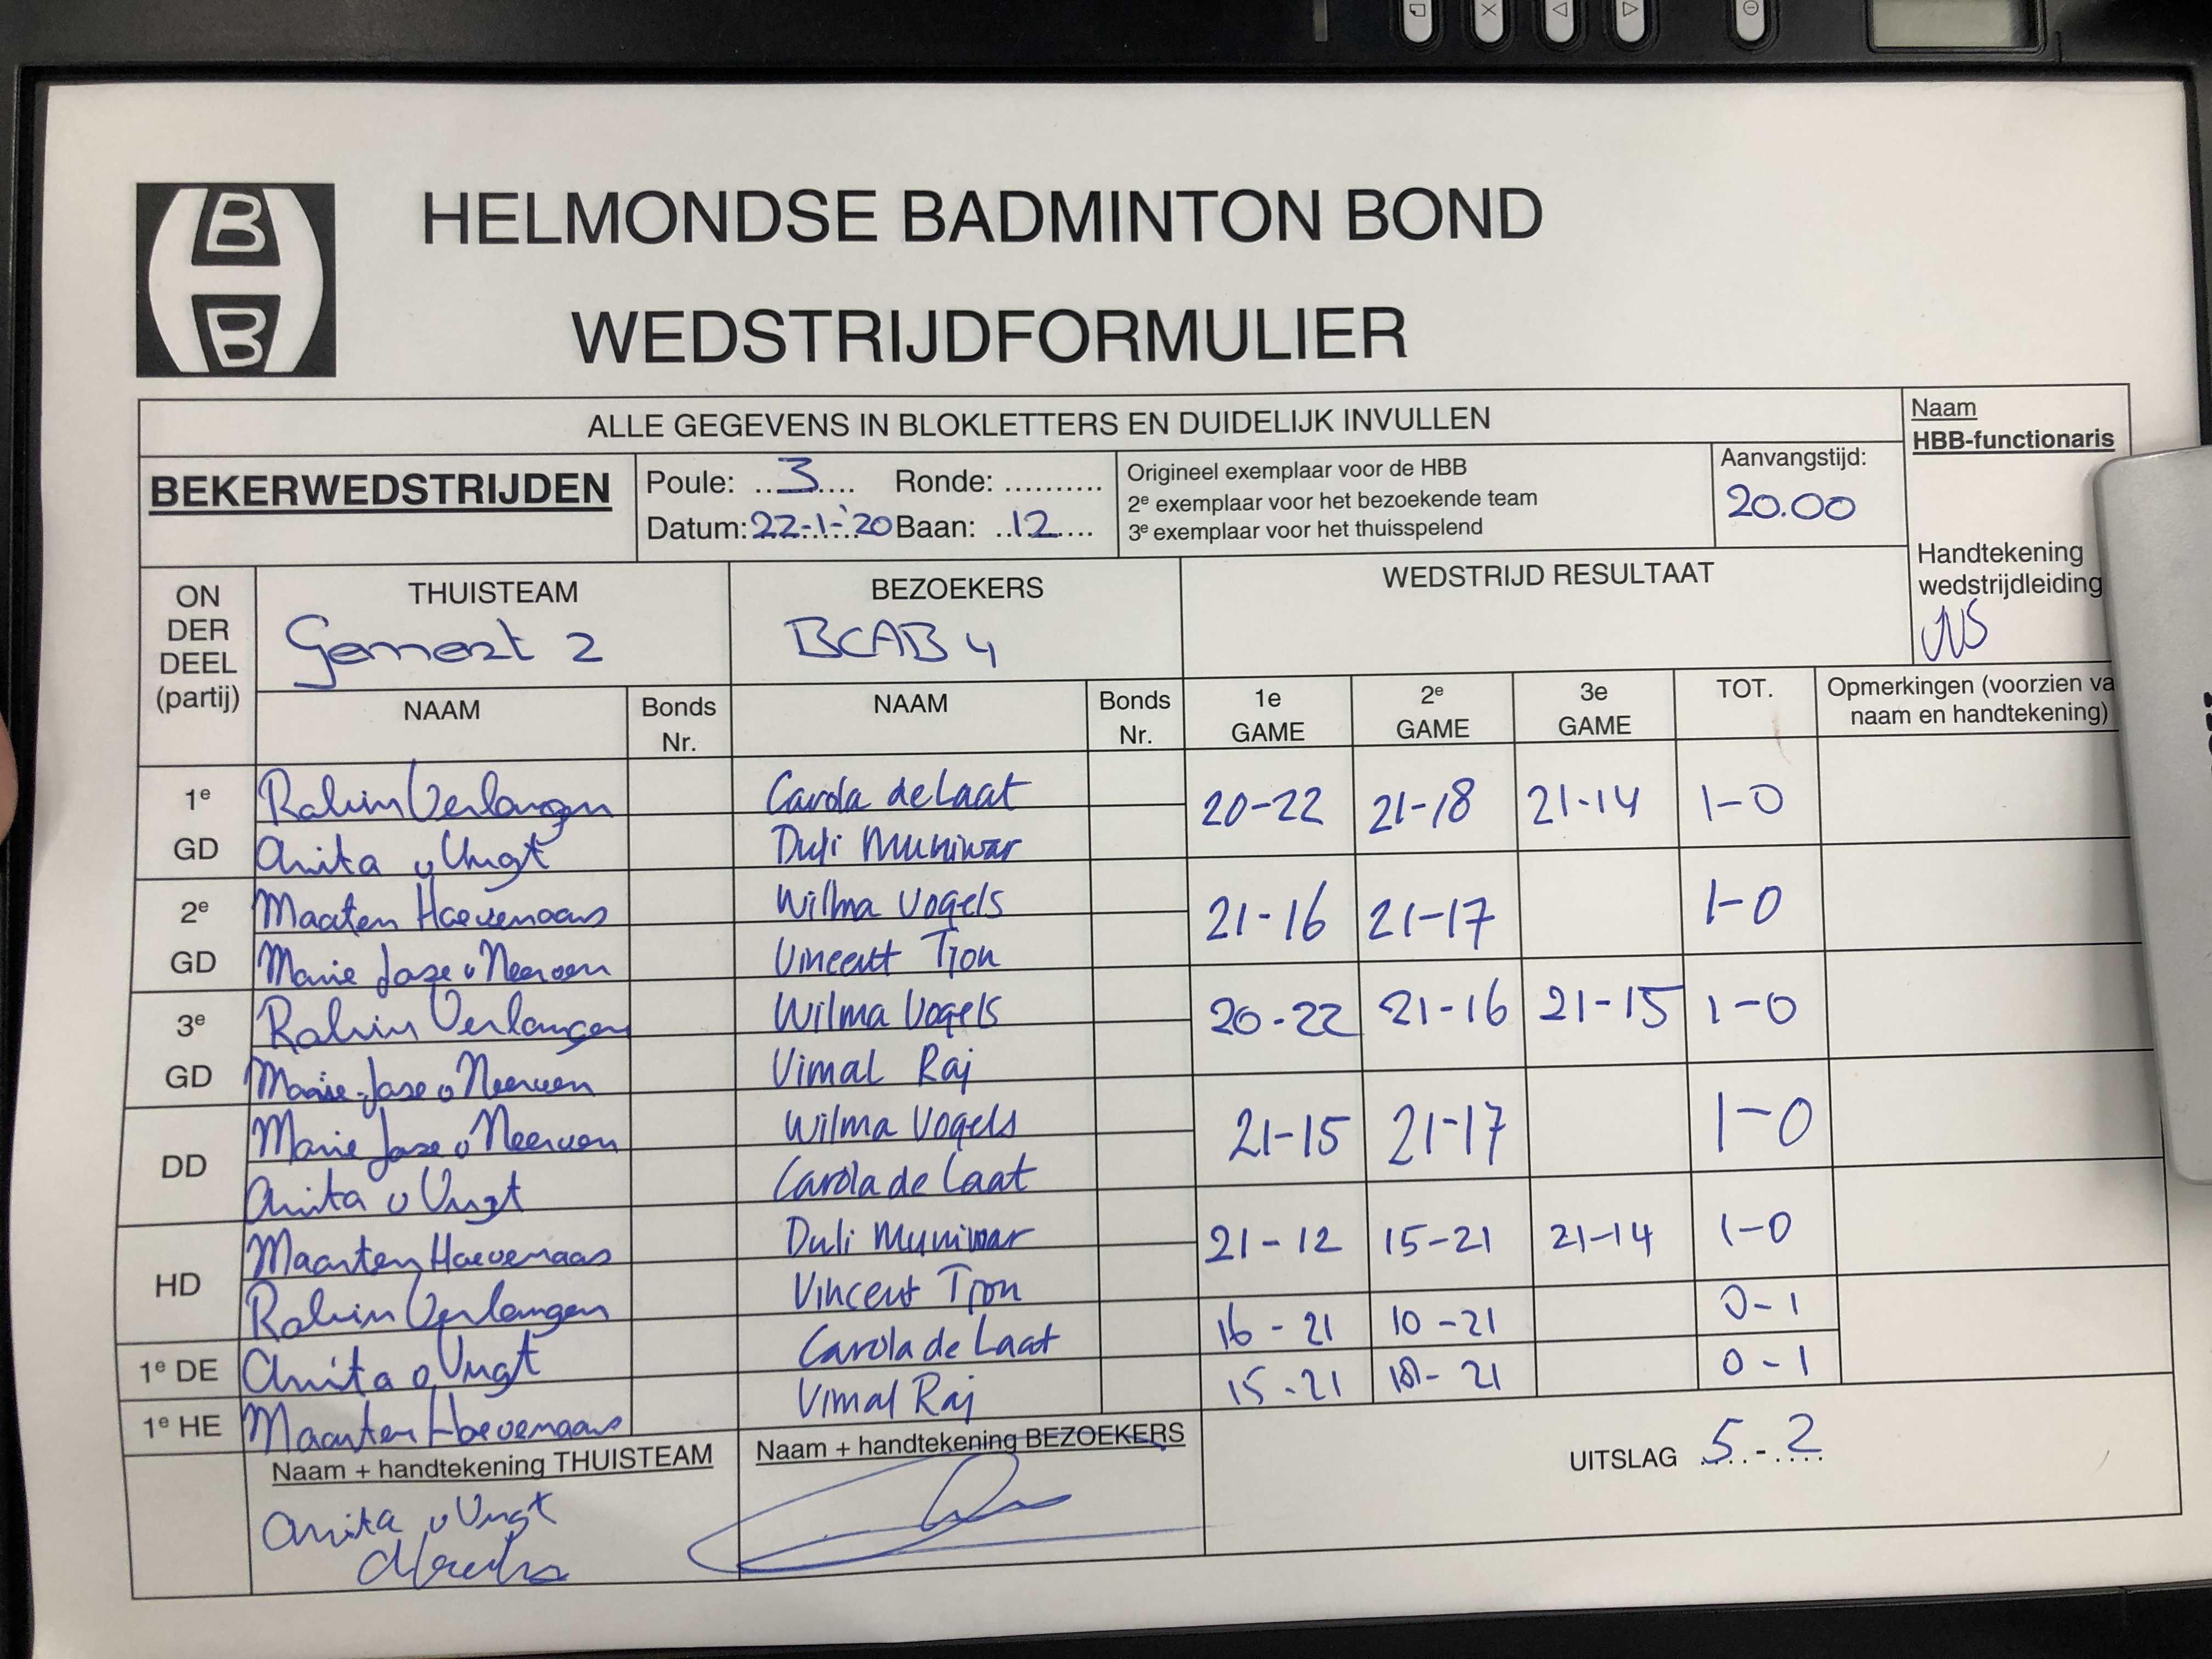 HELMONDSE BADMINTON BOND
WEDSTRIJDFORMULIER
ALLE GEGEVENS IN BLOKLETTERS EN DUIDELIJK INVULLEN
Naam
HBB-functionaris
BEKERWEDSTRIJDEN
Poule: ..3.... Ronde: ..........
Datum: 22-1-'20 Baan: ..12....
Origineel exemplaar voor de HBB
2e exemplaar voor het bezoekende team
3e exemplaar voor het thuisspelend
Aanvangstijd:
20.00
Handtekening
wedstrijdleiding
ON
DER
DEEL
(partij)
THUISTEAM
Gemert 2
BEZOEKERS
BCAB 4
WEDSTRIJD RESULTAAT
NAAM
Bonds
Nr.
NAAM
Bonds
Nr.
1e
GAME
2e
GAME
3e
GAME
TOT.
Opmerkingen (voorzien va
naam en handtekening)
1e
GD
Robin Verlangen
Anita v Vugt
Carola de Laat
Duli Muniwar
20-22 21-18 21-14 1-0
2e
GD
Maarten Hoevenaars
Marie Jose v Neerven
Wilma Vogels
Vincent Tjon
21-16 21-17 1-0
3e
GD
Robin Verlangen
Marie-Jose v Neerven
Wilma Vogels
Vimal Raj
20-22 21-16 21-15 1-0
DD
Marie Jose v Neerven
Anita v Vugt
Wilma Vogels
Carola de Laat
21-15 21-17 1-0
HD
Maarten Hoevenaars
Robin Verlangen
Duli Muniwar
Vincent Tjon
21-12 15-21 21-14 1-0
1e DE
Anita v Vugt
Carola de Laat
16-21 10-21 0-1
1e HE
Maarten Hoevenaars
Vimal Raj
15-21 21 0-1
Naam + handtekening THUISTEAM
Anita v Vugt
Naam + handtekening BEZOEKERS
UITSLAG 5-2